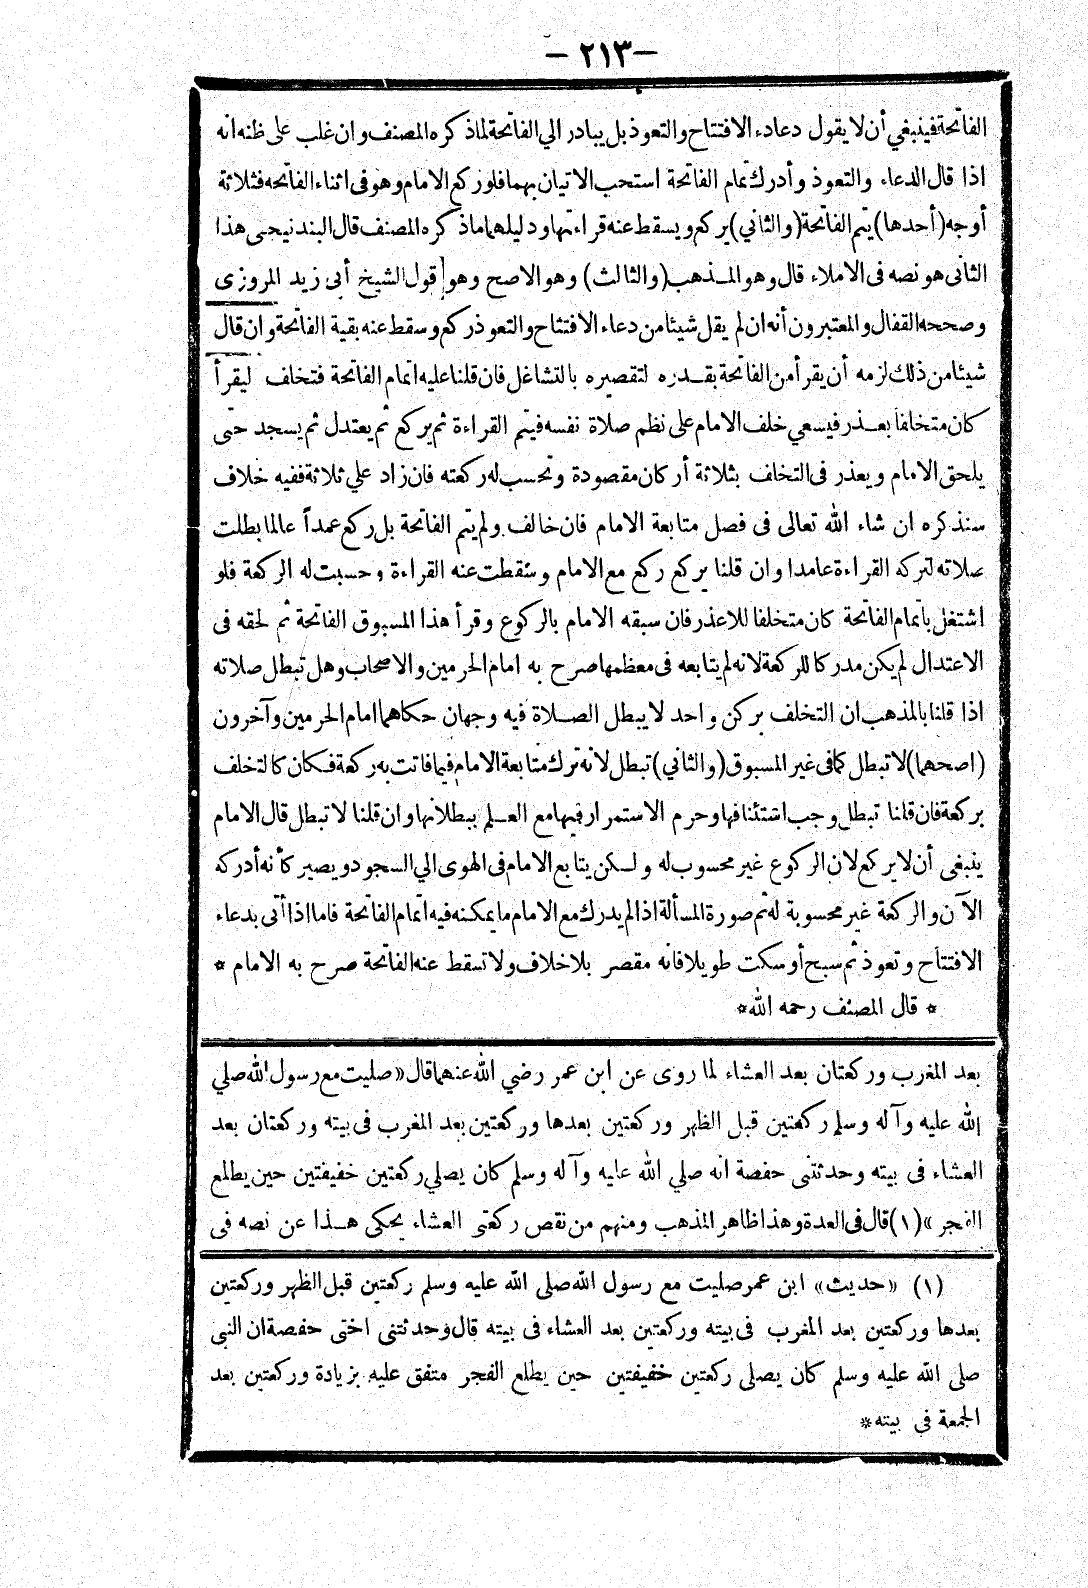 — ٢١٣ —
الفاتحة فينبغي أن لا يقول دعاء الافتتاح والتعوذ بل يبادر الي الفاتحة لما ذكره المصنف وان غلب على ظنه انه
اذا قال الدعاء والتعوذ وأدرك تمام الفاتحة استحب الاتيان بهما فلو ركع الامام وهو فى اثناء الفاتحه فثلاثة
أوجه (أحدها) يتم الفاتحة (والثاني) يركع ويسقط عنه قراءتها ودليلهما ما ذكره المصنف قال البندنيجى هذا
الثانى هو نصه فى الاملاء قال وهو المذهب (والثالث) وهو الاصح وهو قول الشيخ أبى زيد المروزى
وصححه القفال والمعتبرون أنه ان لم يقل شيئا من دعاء الافتتاح والتعوذ ركع وسقط عنه بقية الفاتحة وان قال
شيئا من ذلك لزمه أن يقرأ من الفاتحة بقدره لتقصيره بالتشاغل فان قلنا عليه اتمام الفاتحة فتخلف ليقرأ
كان متخلفا بعذر فيسعي خلف الامام على نظم صلاة نفسه فيتم القراءة ثم يركع ثم يعتدل ثم يسجد حتى
يلحق الامام ويعذر فى التخلف بثلاثة أركان مقصودة وتحسب له ركعته فان زاد علي ثلاثة ففيه خلاف
سنذكره ان شاء الله تعالى فى فصل متابعة الامام فان خالف ولم يتم الفاتحة بل ركع عمداً عالما بطلت
صلاته لتركه القراءة عامدا وان قلنا يركع ركع مع الامام وسقطت عنه القراءة وحسبت له الركعة فلو
اشتغل باتمام الفاتحة كان متخلفا بلا عذر فان سبقه الامام بالركوع وقرأ هذا المسبوق الفاتحة ثم لحقه فى
الاعتدال لم يكن مدركا للركعة لانه لم يتابعه فى معظمها صرح به امام الحرمين والاصحاب وهل تبطل صلاته
اذا قلنا بالمذهب ان التخلف بركن واحد لا يبطل الصلاة فيه وجهان حكاهما امام الحرمين وآخرون
(اصحهما) لا تبطل كما فى غير المسبوق (والثاني) تبطل لانه ترك متابعة الامام فيما فاتت به ركعة فكان كالتخلف
بركعة فان قلنا تبطل وجب استئنافها وحرم الاستمرار فيها مع العلم ببطلانها وان قلنا لا تبطل قال الامام
ينبغى أن لا يركع لان الركوع غير محسوب له ولكن يتابع الامام فى الهوى الي السجود ويصير كأنه أدركه
الآن والركعة غير محسوبة له ثم صورة المسألة اذا لم يدرك مع الامام ما يمكنه فيه اتمام الفاتحة فاما اذا أتى بدعاء
الافتتاح وتعوذ ثم سبح أو سكت طويلا فانه مقصر بلا خلاف ولا تسقط عنه الفاتحة صرح به الامام *
* قال المصنف رحمه الله *
بعد المغرب وركعتان بعد العشاء لما روى عن ابن عمر رضي الله عنهما قال «صليت مع رسول الله صلي
الله عليه وآله وسلم ركعتين قبل الظهر وركعتين بعدها وركعتين بعد المغرب فى بيته وركعتان بعد
العشاء فى بيته وحدثتنى حفصة انه صلي الله عليه وآله وسلم كان يصلي ركعتين خفيفتين حين يطلع
الفجر» (١) قال فى العدة وهذا ظاهر المذهب ومنهم من نقص ركعتى العشاء يحكى هذا عن نصه فى
(١) «حديث» ابن عمر صليت مع رسول الله صلى الله عليه وسلم ركعتين قبل الظهر وركعتين
بعدها وركعتين بعد المغرب فى بيته وركعتين بعد العشاء فى بيته قال وحدثتنى اختى حفصة ان النبى
صلى الله عليه وسلم كان يصلى ركعتين خفيفتين حين يطلع الفجر متفق عليه بزيادة وركعتين بعد
الجمعة فى بيته *